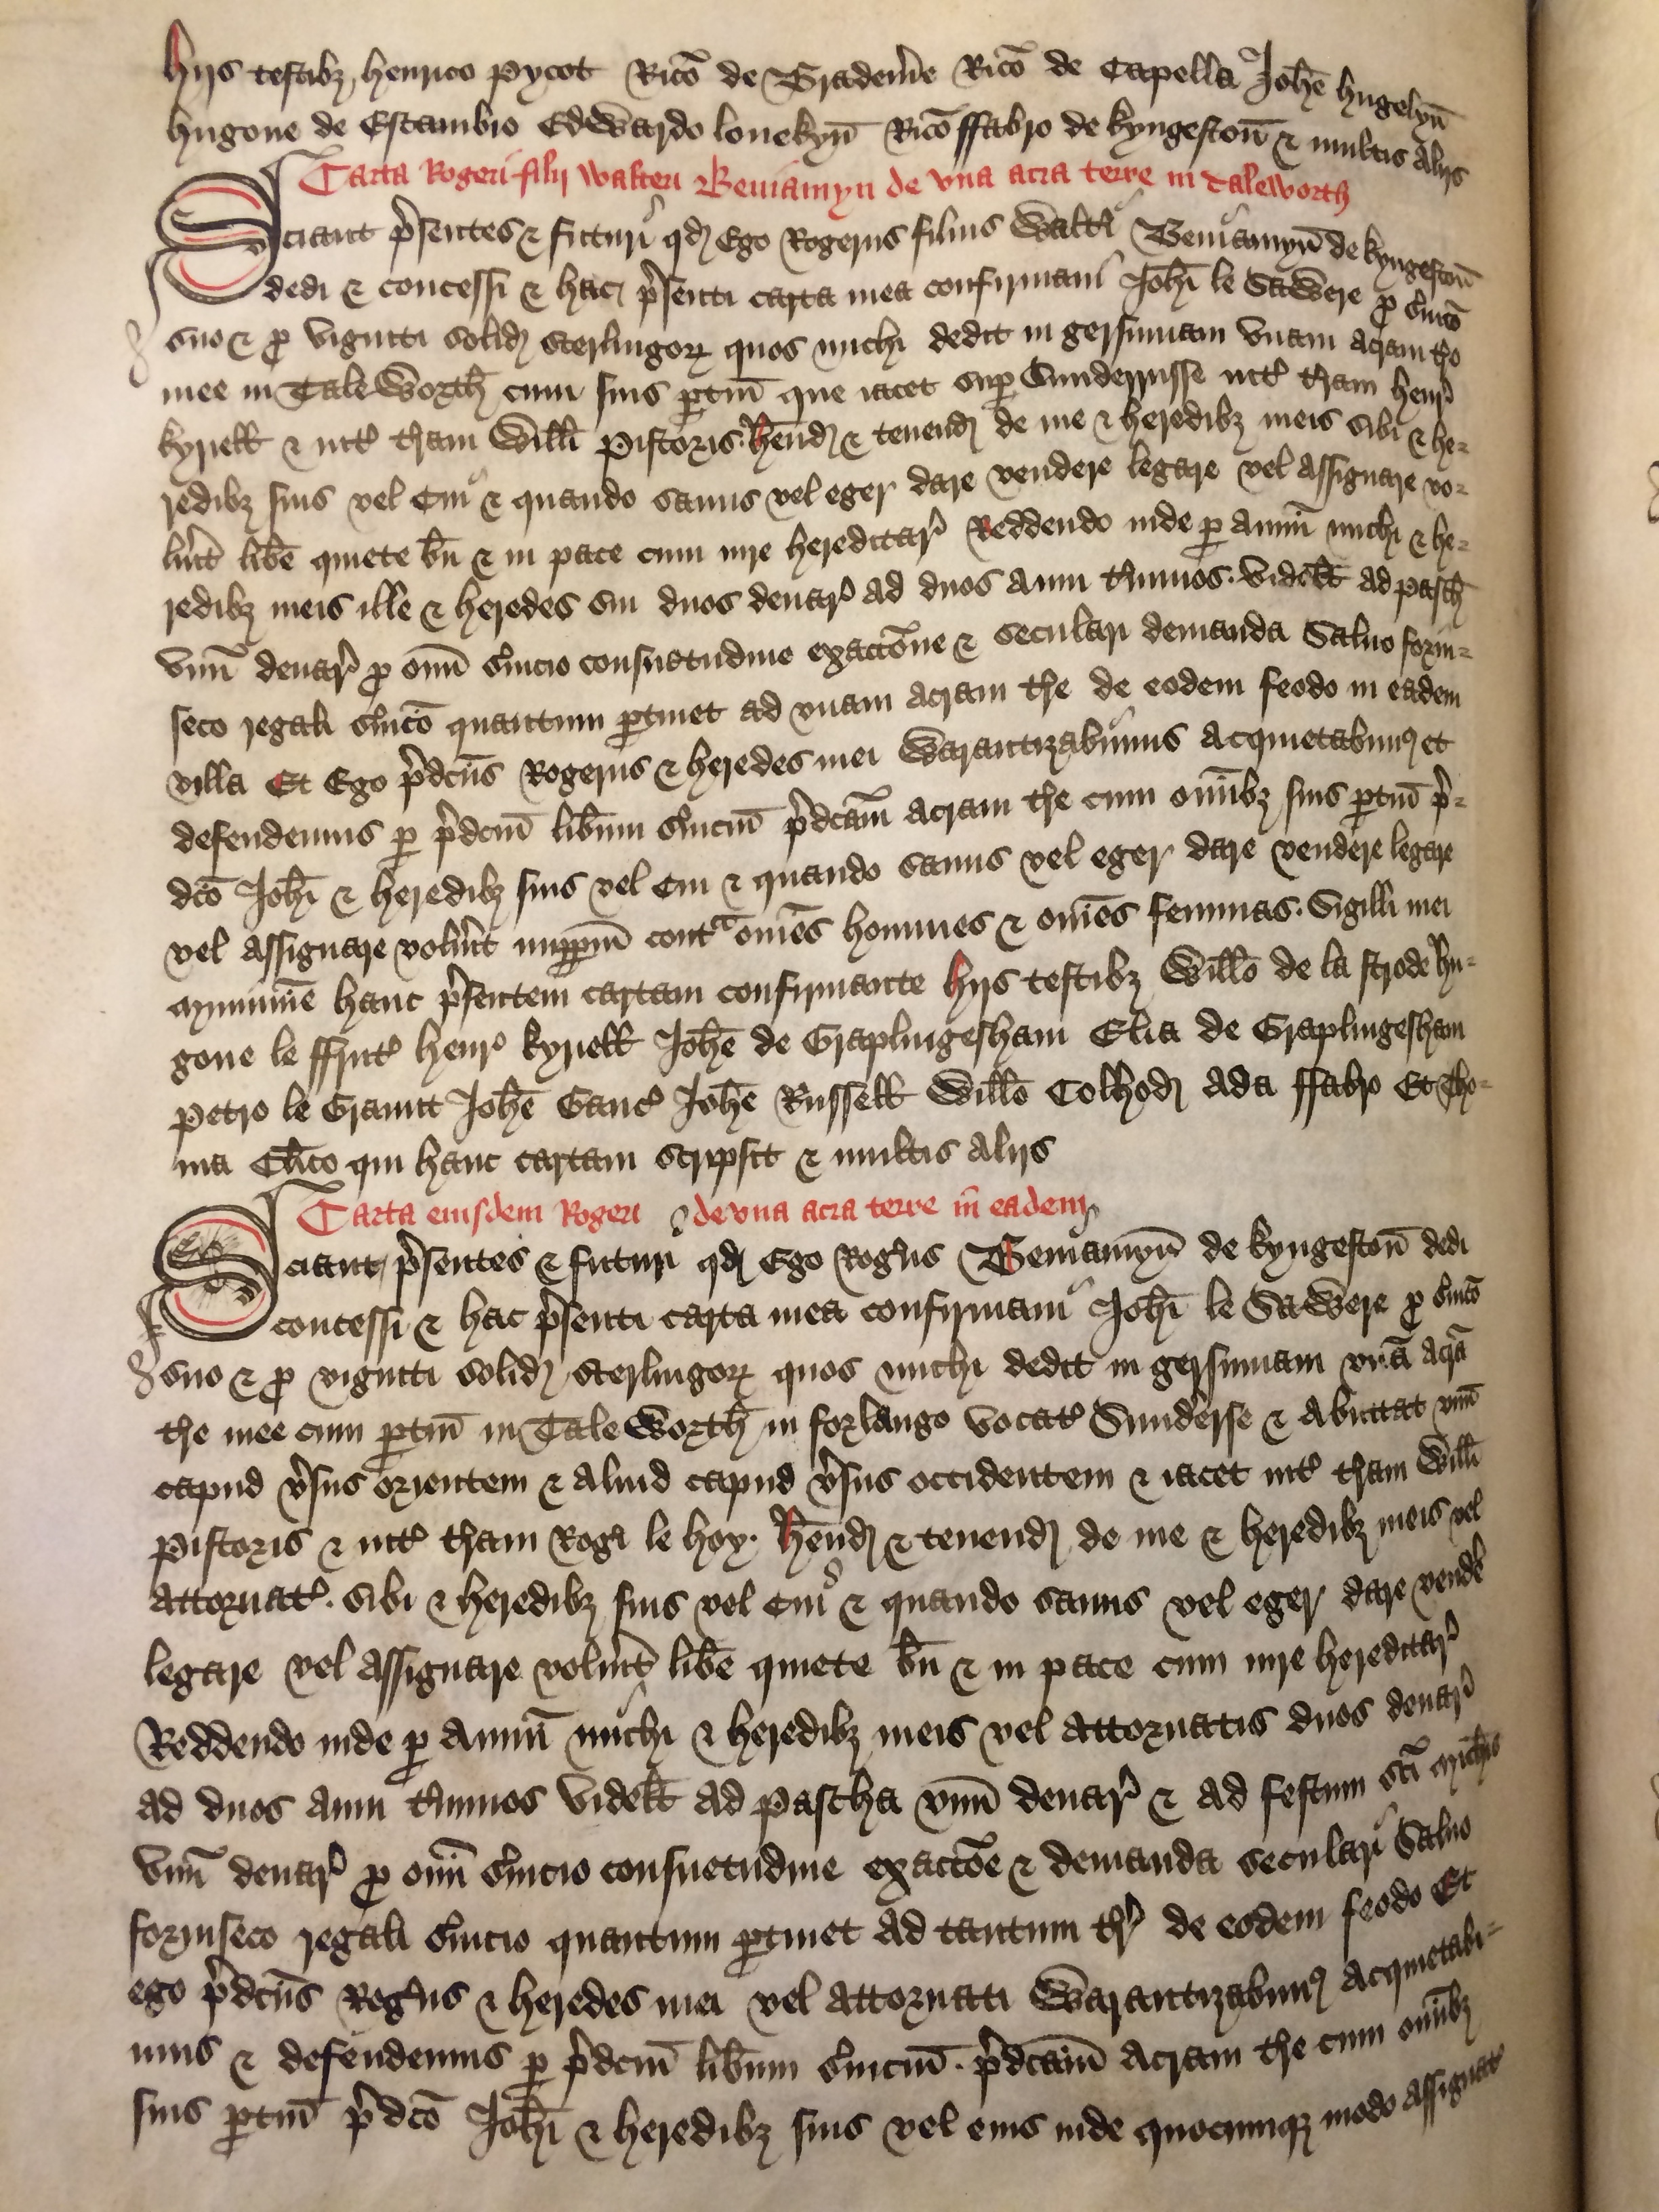 hijs testibz henrico pycot Ricō de Brademe Ricō de Capella Johē hugelyn̄
hugone de Estambio Edwardo lonekyn̄ Ricō ffabro de kyngeston̄ & multis alijs
Carta Rogeri filij walteri Beniamyn de vna acra terre in taleworth
Sciant p̄sentes & futuri qd Ego Rogerus filius Walt'i Beniamyn̄ de kyngeston̄
dedi & concessi & hac p̄senti carta mea confirmaui Joh̄i le Sawere p s'uicō
suo & p viginti solid sterlingor quos michi dedit in gersumam vnam acram t're
mee in Taleworth̄ cum suis ptin̄ que iacet sup Sunderrusse int' t'ram henr'
kyriell & int' t'ram Will̄i pistoris. h̄end & tenend de me & heredibz meis sibi & he-
redibz suis vel cui & quando sanus vel eger dare vendere legare vel assignare vo-
lu'it lib'e quiete bn̄ & in pace cum iure hereditar' Reddendo inde p annū michi & he-
redibz meis ille & heredes sui duos denar' ad duos anni t'minos. videlt ad pasch̄
vnū denar' p om̄i s'uicio consuetudine exactōne & seculari demanda Saluo forin-
seco regali s'uicō quantum ptinet ad vnam acram t're de eodem feodo in eadem
villa Et Ego p̄dcūs Rogerus & heredes mei Warantizabimus acquietabim' et
defendemus p p̄dcm̄ lib'um s'uiciū p̄dcam̄ acram t're cum om̄ibz suis ptin̄ p̄-
dcō Joh̄i & heredibz suis vel cui & quando sanus vel eger dare vendere legare
vel assignare volu'it imppm̄ cont'a om̄es homines & om̄es feminas. Sigilli mei
munimīe hanc p̄sentem cartam confirmante hijs testibz Will̄o de la strode hu-
gone le ffrut' henr' kyriell Joh̄e de Graplingesham Elia de Graplingesham
petro le Graunt Joh̄e Ganc' Joh̄e Russell Will̄o Colhod Ada ffabro Et Tho-
ma Cl'ico qui hanc cartam scripsit & multis alijs
Carta eiusdem Rogeri de vna acra terre in eadem
Sciant p̄sentes & futuri qd Ego Rog'us Beniamyn̄ de kyngeston̄ dedi
concessi & hac p̄senti carta mea confirmaui Joh̄i le Sawere p s'uicō
suo & p viginti solid sterlingor quos michi dedit in gersumam vnā acrā
t're mee cum ptin̄ in Taleworth̄ in forlango vocat' Sunderse & abuttat vnū
capud v'sus orientem & aliud capud v'sus occidentem & iacet int' t'ram Will̄i
pistoris & int' t'ram Rog'i le hoy. h̄end & tenend de me & heredibz meis vel
attornat'. sibi & heredibz suis vel cui & quando sanus vel eger dare vend'e
legare vel assignare volu'it lib'e quiete bn̄ & in pace cum iure hereditar'
Reddendo inde p annū michi & heredibz meis vel attornatis duos denar'
ad duos anni t'minos videlt ad pascha vnū denar' & ad festum sc̄i mich̄is
vnū denar' p om̄i s'uicio consuetudine exactōe & demanda seculari Saluo
forinseco regali s'uicio quantum ptinet ad tantum t'r' de eodem feodo Et
ego p̄dcūs Rog'us & heredes mei vel attornati Warantizabim' acquietabi-
mus & defendemus p p̄dcm̄ lib'um s'uiciū. p̄dcam̄ acram t're cum om̄ibz
suis ptin̄ p̄dcō Joh̄i & heredibz suis vel eius inde quocumqz modo assignat'